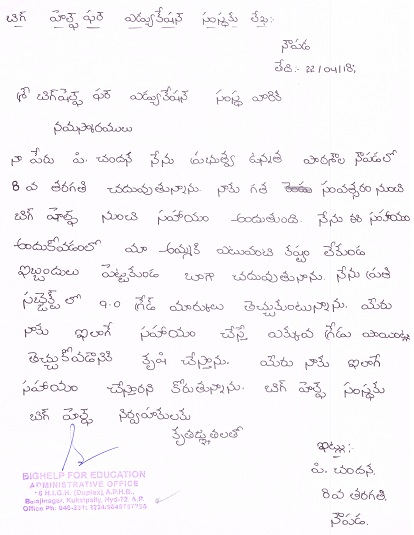 బిగ్ హెల్ప్ ఫర్ ఎడ్యుకేషన్ సంస్థకు లేఖ:-
నౌపడ
తేది:- 22/04/18,
శ్రీ బిగ్‌హెల్ప్ ఫర్ ఎడ్యుకేషన్ సంస్థ వారికి
నమస్కారములు
నా పేరు పి. చందన నేను ప్రభుత్వ ఉన్నత పాఠశాల నౌపడలో
8 వ తరగతి చదువుతున్నాను. నాకు గత సంవత్సరం నుంచి
బిగ్ హెల్ప్ నుంచి సహాయం అందుతుంది. నేను ఈ సహాయం
అందుకోవడంలో మా అమ్మకి ఎటువంటి కష్టం లేకుండ
ఇబ్బందులు పెట్టకుండ బాగా చదువుతున్నాను. నేను ప్రతి
సబ్జెక్ట్ లో 9.0 గ్రేడ్ మార్కులు తెచ్చుకుంటున్నాను. మీరు
నాకు ఇలాగే సహాయం చేస్తే ఎక్కువ గ్రేడు
తెచ్చుకోవడానికి కృషి చేస్తాను. మీరు నాకు ఇలాగే
సహాయం చేస్తారని కోరుతున్నాను. బిగ్ హెల్ప్ సంస్థకు
బిగ్ హెల్ప్ నిర్వాహకులకు
కృతజ్ఞతలతో
ఇట్లు:-
పి. చందన,
8వ తరగతి
నౌపడ.
BIGHELP FOR EDUCATION
ADMINISTRATIVE OFFICE
H.I.G.H. (Duplex), A.P.H.B.,
Balajinagar, Kukatpally, Hyd-72. A.P.
Office Ph. 040-